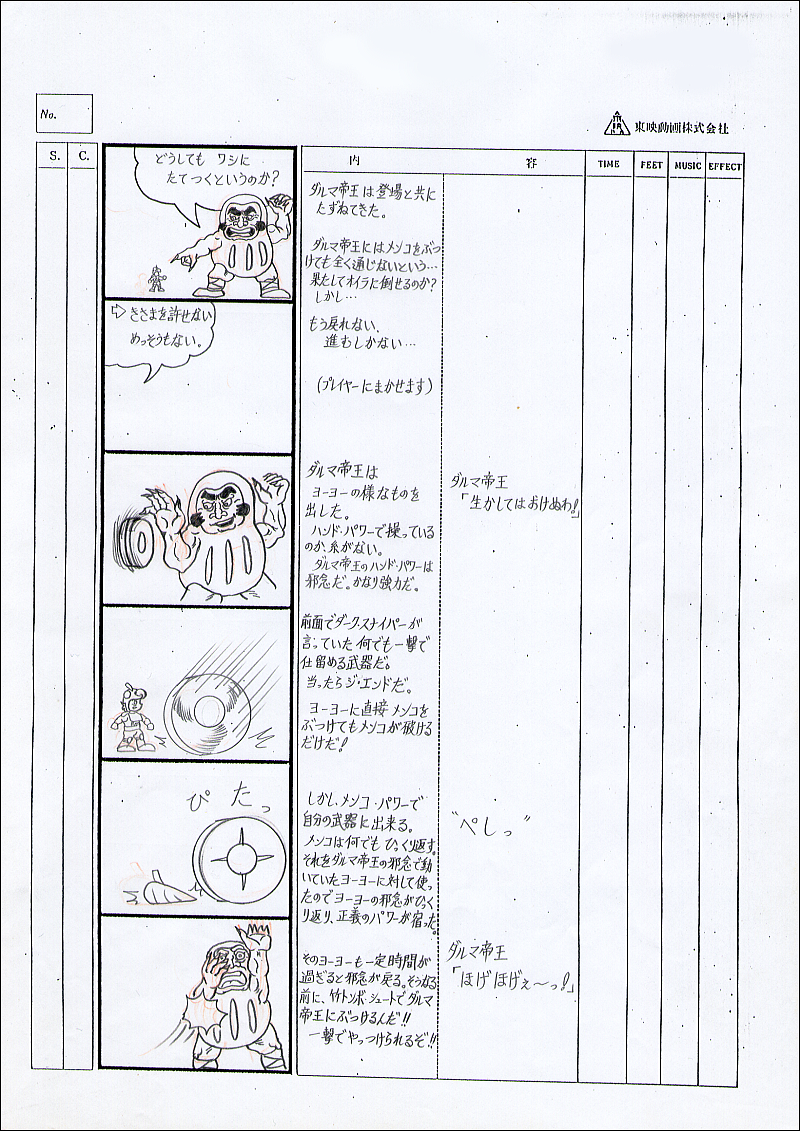 No.
東映動画株式会社
S. C. 内 容 TIME FEET MUSIC EFFECT
どうしても ワシに
たてつくというのか?
ダルマ帝王は登場と共に
たずねてきた。
ダルマ帝王にはメンコをぶつ
けても全く通じないという…
果たしてオイラに倒せるのか?
しかし…
⇨ きさまを許せない
めっそうもない。
もう戻れない、
進むしかない…
(プレイヤーにまかせます)
ダルマ帝王は
ヨーヨーの様なものを
出した。
ハンド・パワーで操っている
のか、糸がない。
ダルマ帝王のハンド・パワーは
邪念だ。かなり強力だ。
ダルマ帝王
「生かしてはおけぬわ!」
前面でダーク・スナイパーが
言っていた何でも一撃で
仕留める武器だ。
当ったらジ・エンドだ。
ヨーヨーに直接メンコを
ぶつけてもメンコが破ける
だけだ!
ぴたっ
しかし、メンコ・パワーで
自分の武器に出来る。
メンコは何でもひっくり返す。
それをダルマ帝王の邪念で動
いていたヨーヨーに対して使っ
たのでヨーヨーの邪念がひっく
り返り、正義のパワーが宿った。
"ぺしっ"
そのヨーヨーも一定時間が
過ぎると邪念が戻る。そうなる
前に、竹トンボ・シュートでダルマ
帝王にぶつけるんだ!!
一撃でやっつけられるぞ!!
ダルマ帝王
「ほげほげぇ〜っ!」